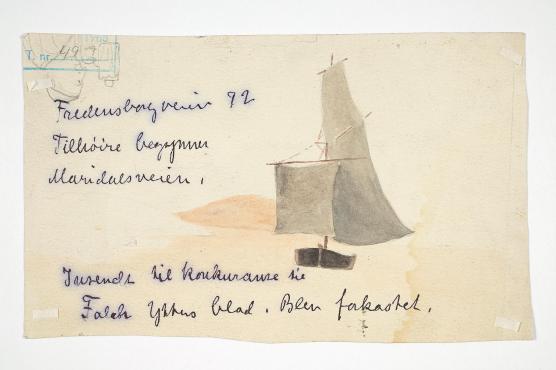 T. nr. 49
Fredensborgveien 92
Tilhöire begynner
Maridalsveien.
Insendt til Konkuranse tie
Falch Ytters blad. Blev forkastet.